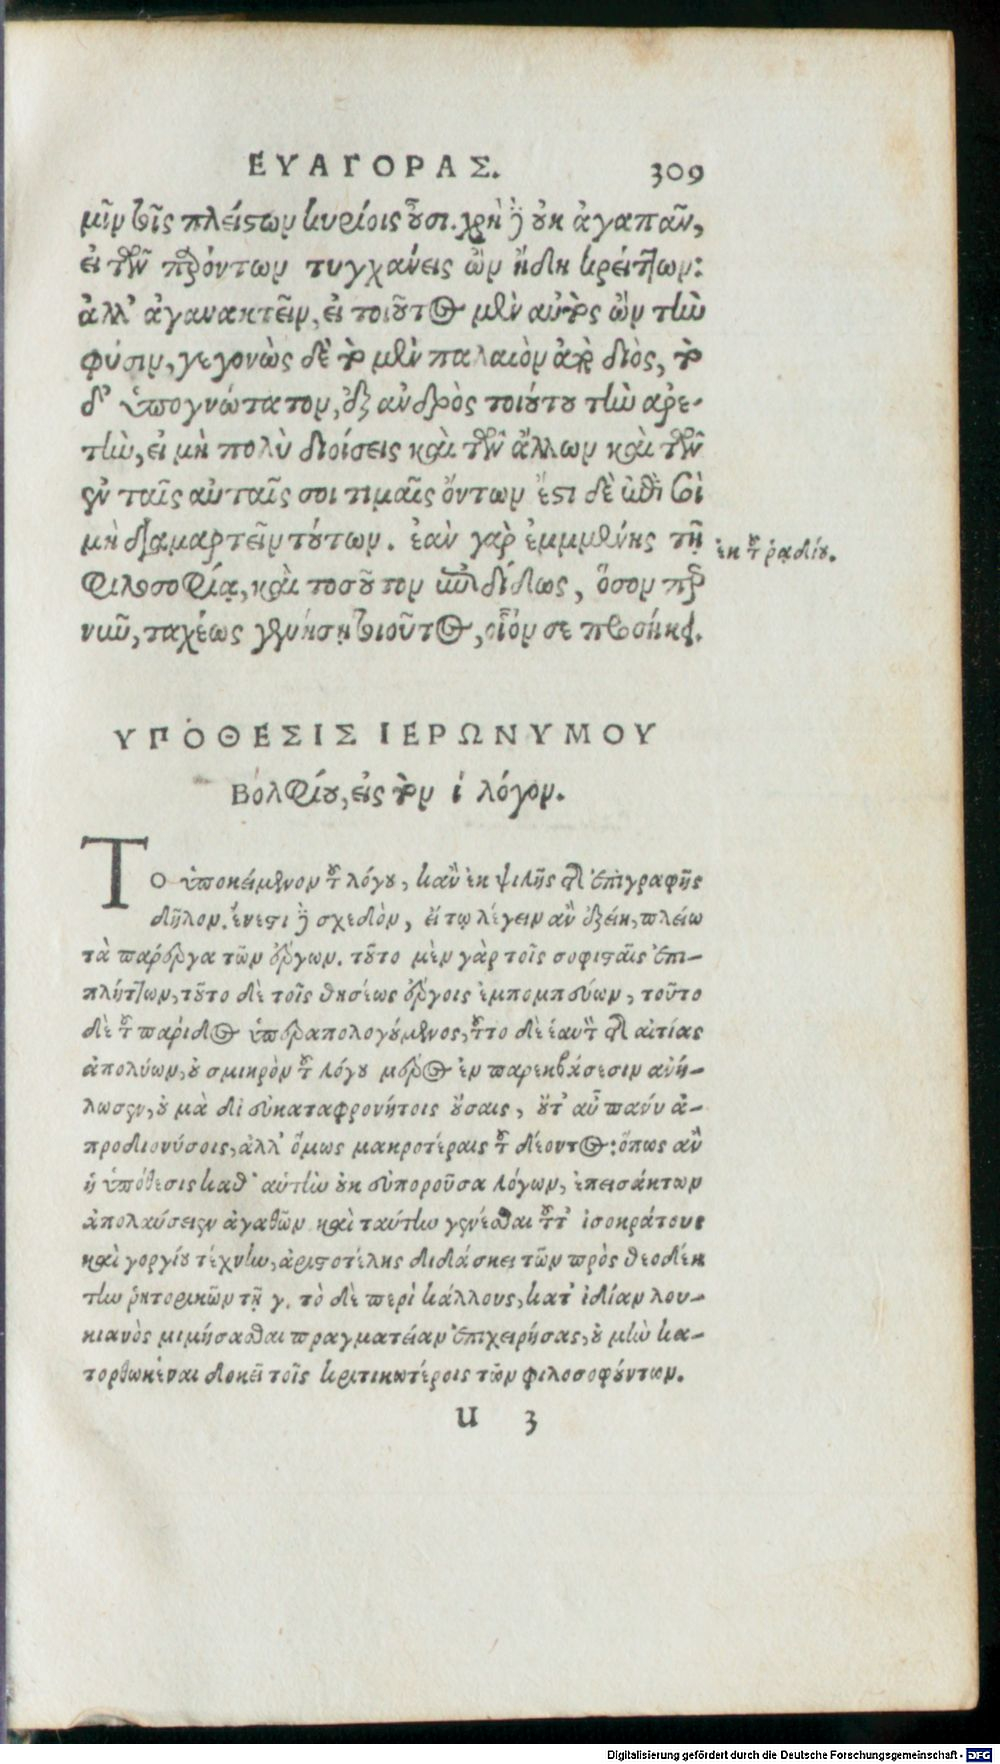 ΕΥΑΓΟΡΑΣ. 309
μῖν τοῖς πλείστων κυρίοις οὖσι. χρὴ δὲ οὐκ ἀγαπᾶν,
εἰ τῶν παρόντων τυγχάνεις ὢν ἤδη κρείττων:
ἀλλ' ἀγανακτεῖν, εἰ τοιοῦτος μὲν αὐτὸς ὢν τὴν
φύσιν, γεγονὼς δὲ τὸ μὲν παλαιὸν ἀπὸ διὸς, τὸ
δ' ὑπογυώτατον, ἐξ ἀνδρὸς τοιούτου τὴν ἀρε-
τὴν, εἰ μὴ πολὺ διοίσεις καὶ τῶν ἄλλων καὶ τῶν
ἐν ταῖς αὐταῖς σοι τιμαῖς ὄντων ἔστι δὲ ἐπὶ σοὶ
μὴ διαμαρτεῖν τούτων. ἐὰν γὰρ ἐμμμένῃς τῇ
φιλοσοφίᾳ, καὶ τοσοῦτον ἐπιδίδως, ὅσον περ
νῦν, ταχέως γενήσῃ τοιοῦτος, οἷόν σε προσήκει.
ἐκ τοῦ ῥᾳδίου.
ΥΠΟΘΕΣΙΣ ΙΕΡΩΝΥΜΟΥ
Βολφίου, εἰς τὸν ί λόγον.
ΤΟ ὑποκείμενον τοῦ λόγου, κἂν ἐκ ψιλῆς τῆς ἐπιγραφῆς
δῆλον. ἔνεστι δὲ σχεδὸν, εἴ τῳ λέγειν ἂν ἐξείη, πλείω
τὰ πάρεργα τῶν ἔργων. τοῦτο μὲν γὰρ τοῖς σοφισταῖς ἐπι-
πλήττων, τοῦτο δὲ τοῖς θησέως ἔργοις ἐμπομπεύων, τοῦτο
δὲ τοῦ πάριδος ὑπεραπολογούμενος, τοῦτο δὲ ἑαυτὸν τῆς αἰτίας
ἀπολύων, οὐ σμικρὸν τοῦ λόγου μέρος ἐν παρεκβάσεσιν ἀνή-
λωσεν, οὐ μὰ δί εὐκαταφρονήτοις οὔσαις, οὔτ' αὖ πάνυ ἀ-
προδιονύσοις, ἀλλ' ὅμως μακροτέραις τοῦ δέοντος: ὅπως ἂν
ἡ ὑπόθεσις καθ' αὑτὴν οὐκ εὐποροῦσα λόγων, ἐπεισάκτων
ἀπολαύσειεν ἀγαθῶν καὶ ταύτην γενέσθαι τοῦτ' ἰσοκράτους
καὶ γοργίου τέχνην, ἀριστοτέλης διδάσκει τῶν πρὸς θεοδέκ
την ῥητορικῶν τῇ γ. τὸ δὲ περὶ κάλλους, κατ' ἰδίαν λου-
κιανὸς μιμήσασθαι πραγματείαν ἐπιχειρήσας, οὐ μὴν κα-
τορθωκέναι δοκεῖ τοῖς κριτικωτέροις τῶν φιλοσοφούντων.
u 3
Digitalisierung gefördert durch die Deutsche Forschungsgemeinschaft - DFG